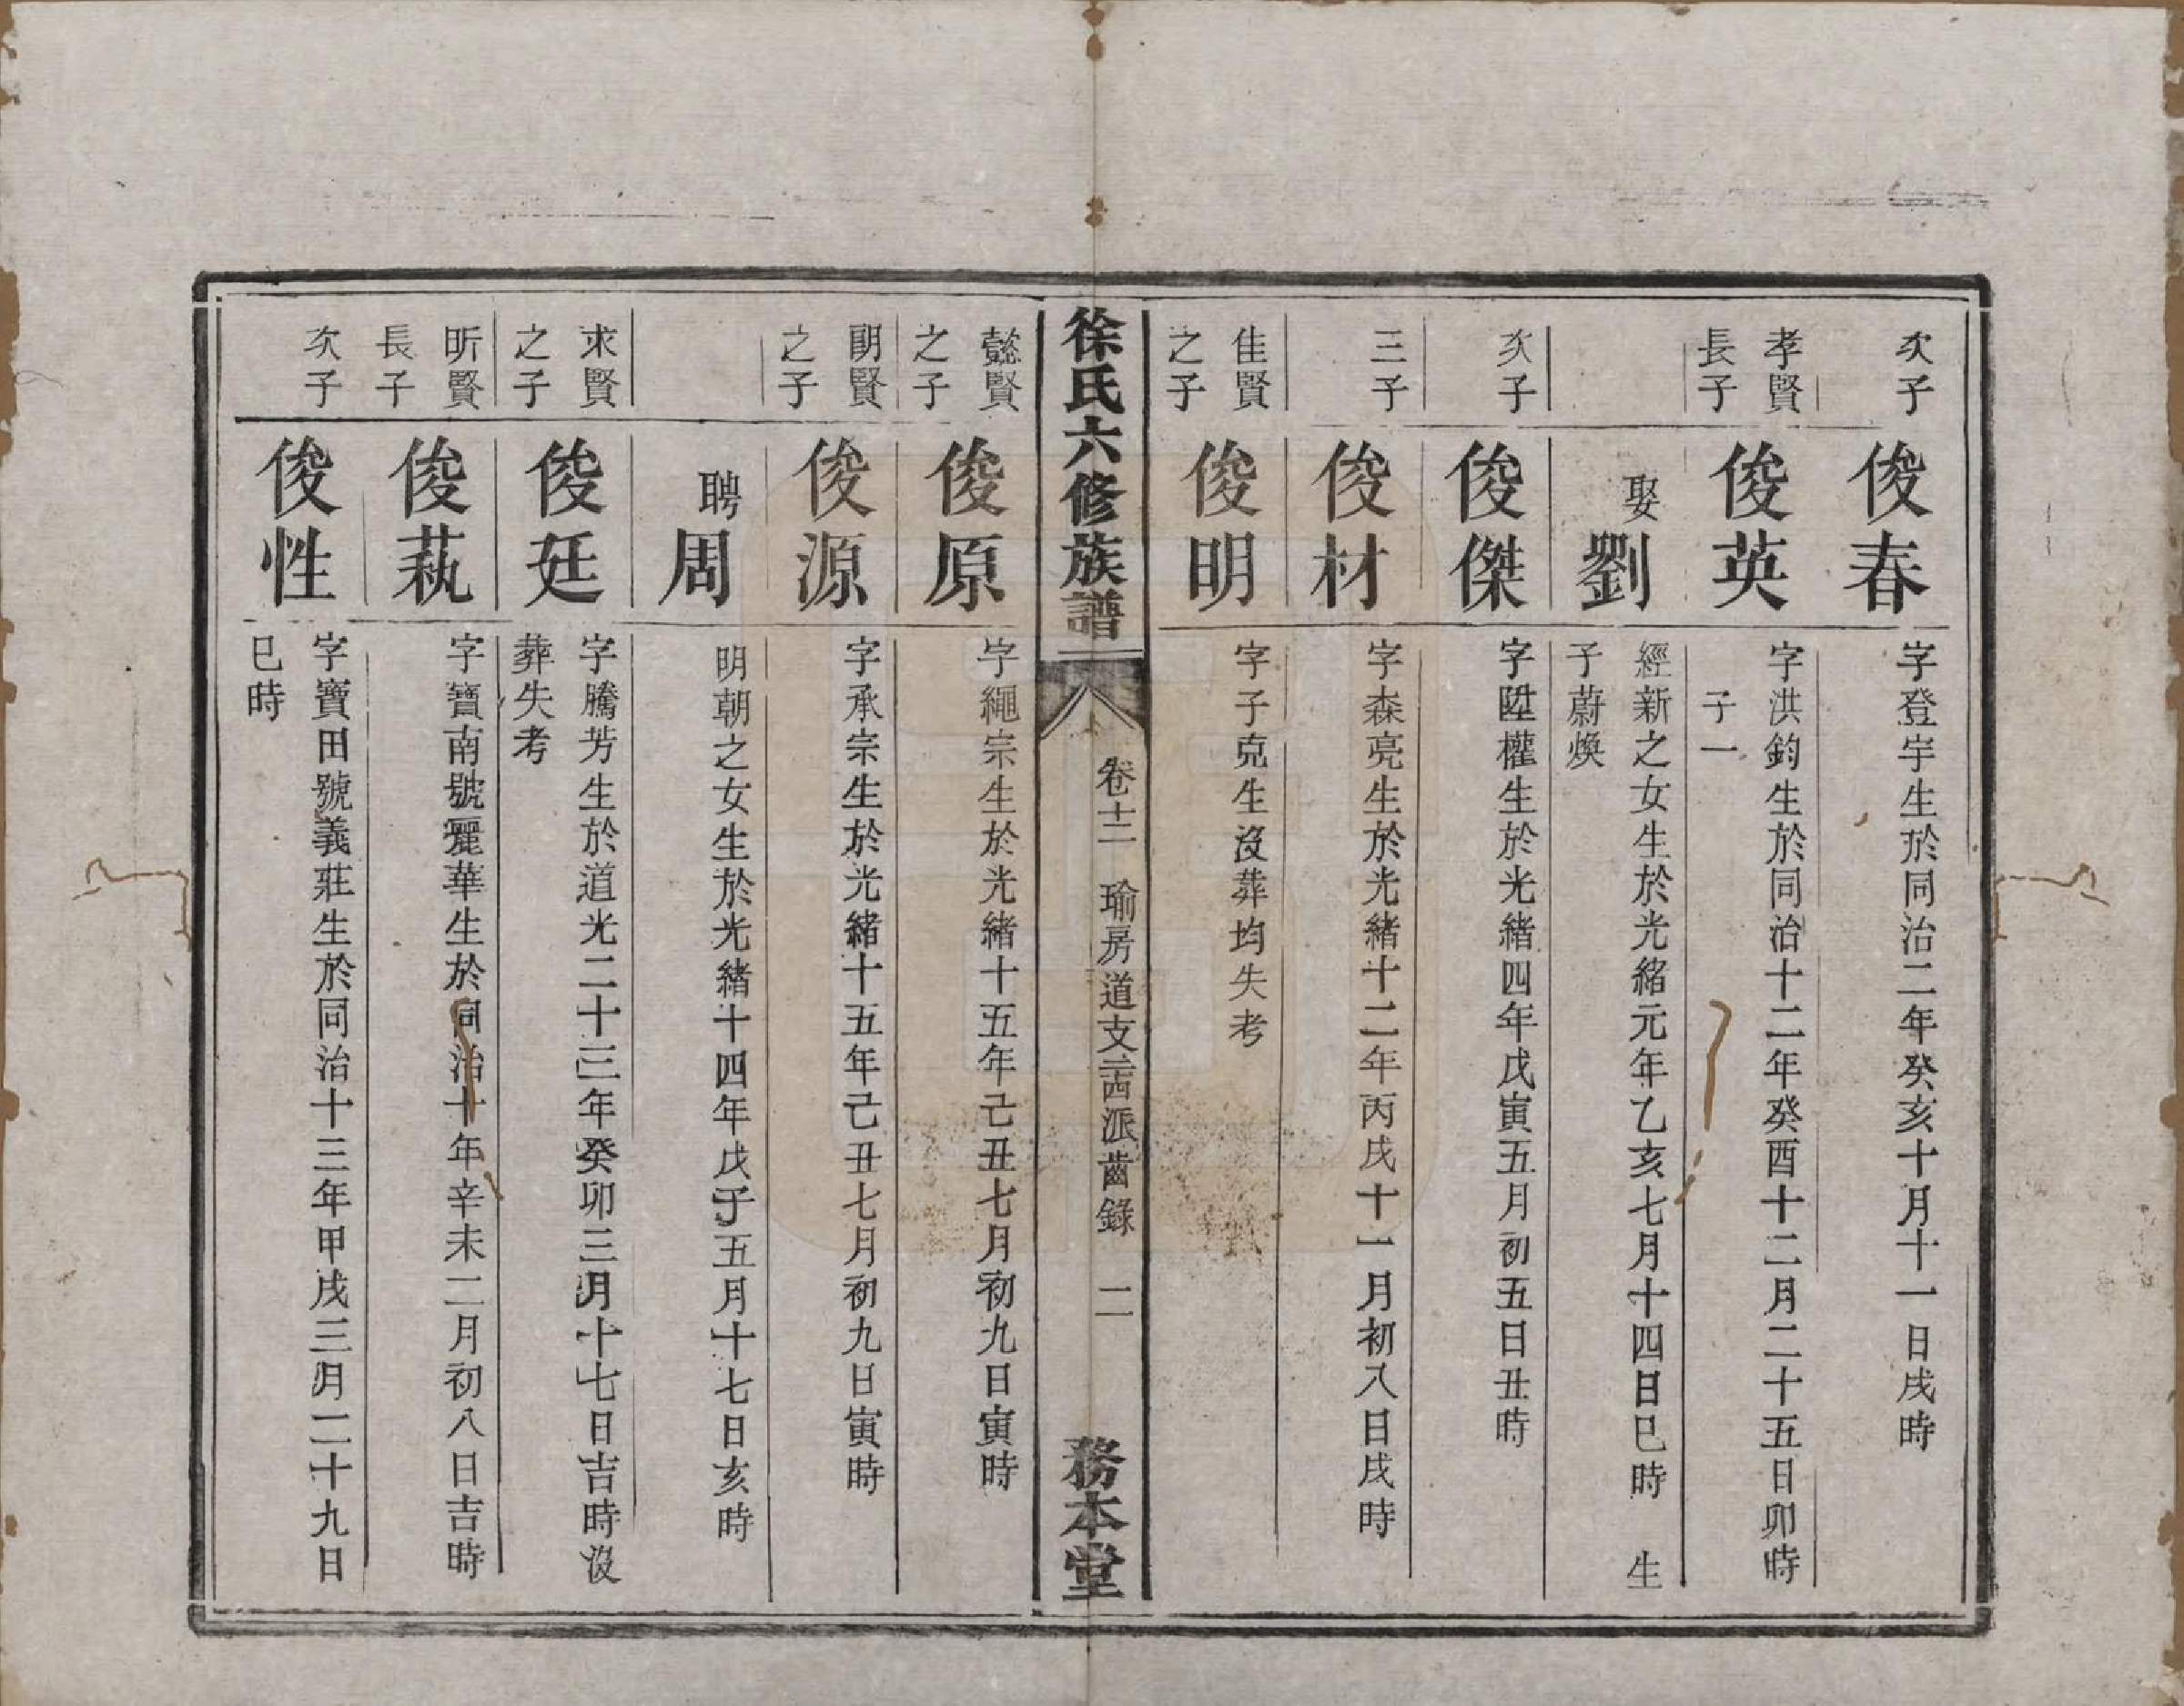 次子
俊春
字登宇生於同治二年癸亥十月十一日戌時
孝賢
長子
俊英
字洪鈞生於同治十二年癸酉十二月二十五日卯時
子一
娶劉
經新之女生於光緒元年乙亥七月十四日巳時 生
子蔚煥
次子
俊傑
字陞權生於光緒四年戊寅五月初五日丑時
三子
俊材
字森亮生於光緒十二年丙戌十一月初八日戌時
佳賢
之子
俊明
字子克生沒葬均失考
徐氏六修族譜
卷十二 瑜房道支三四派齒錄 二
務本堂
懿賢
之子
俊原
字繩宗生於光緒十五年己丑七月初九日寅時
朗賢
之子
俊源
字承宗生於光緒十五年己丑七月初九日寅時
聘周
明朝之女生於光緒十四年戊子五月十七日亥時
求賢
之子
俊廷
字騰芳生於道光二十三年癸卯三月十七日吉時沒
葬失考
昕賢
長子
俊蓺
字寶南號麗華生於同治十年辛未二月初八日吉時
次子
俊性
字寶田號義莊生於同治十三年甲戌三月二十九日
巳時